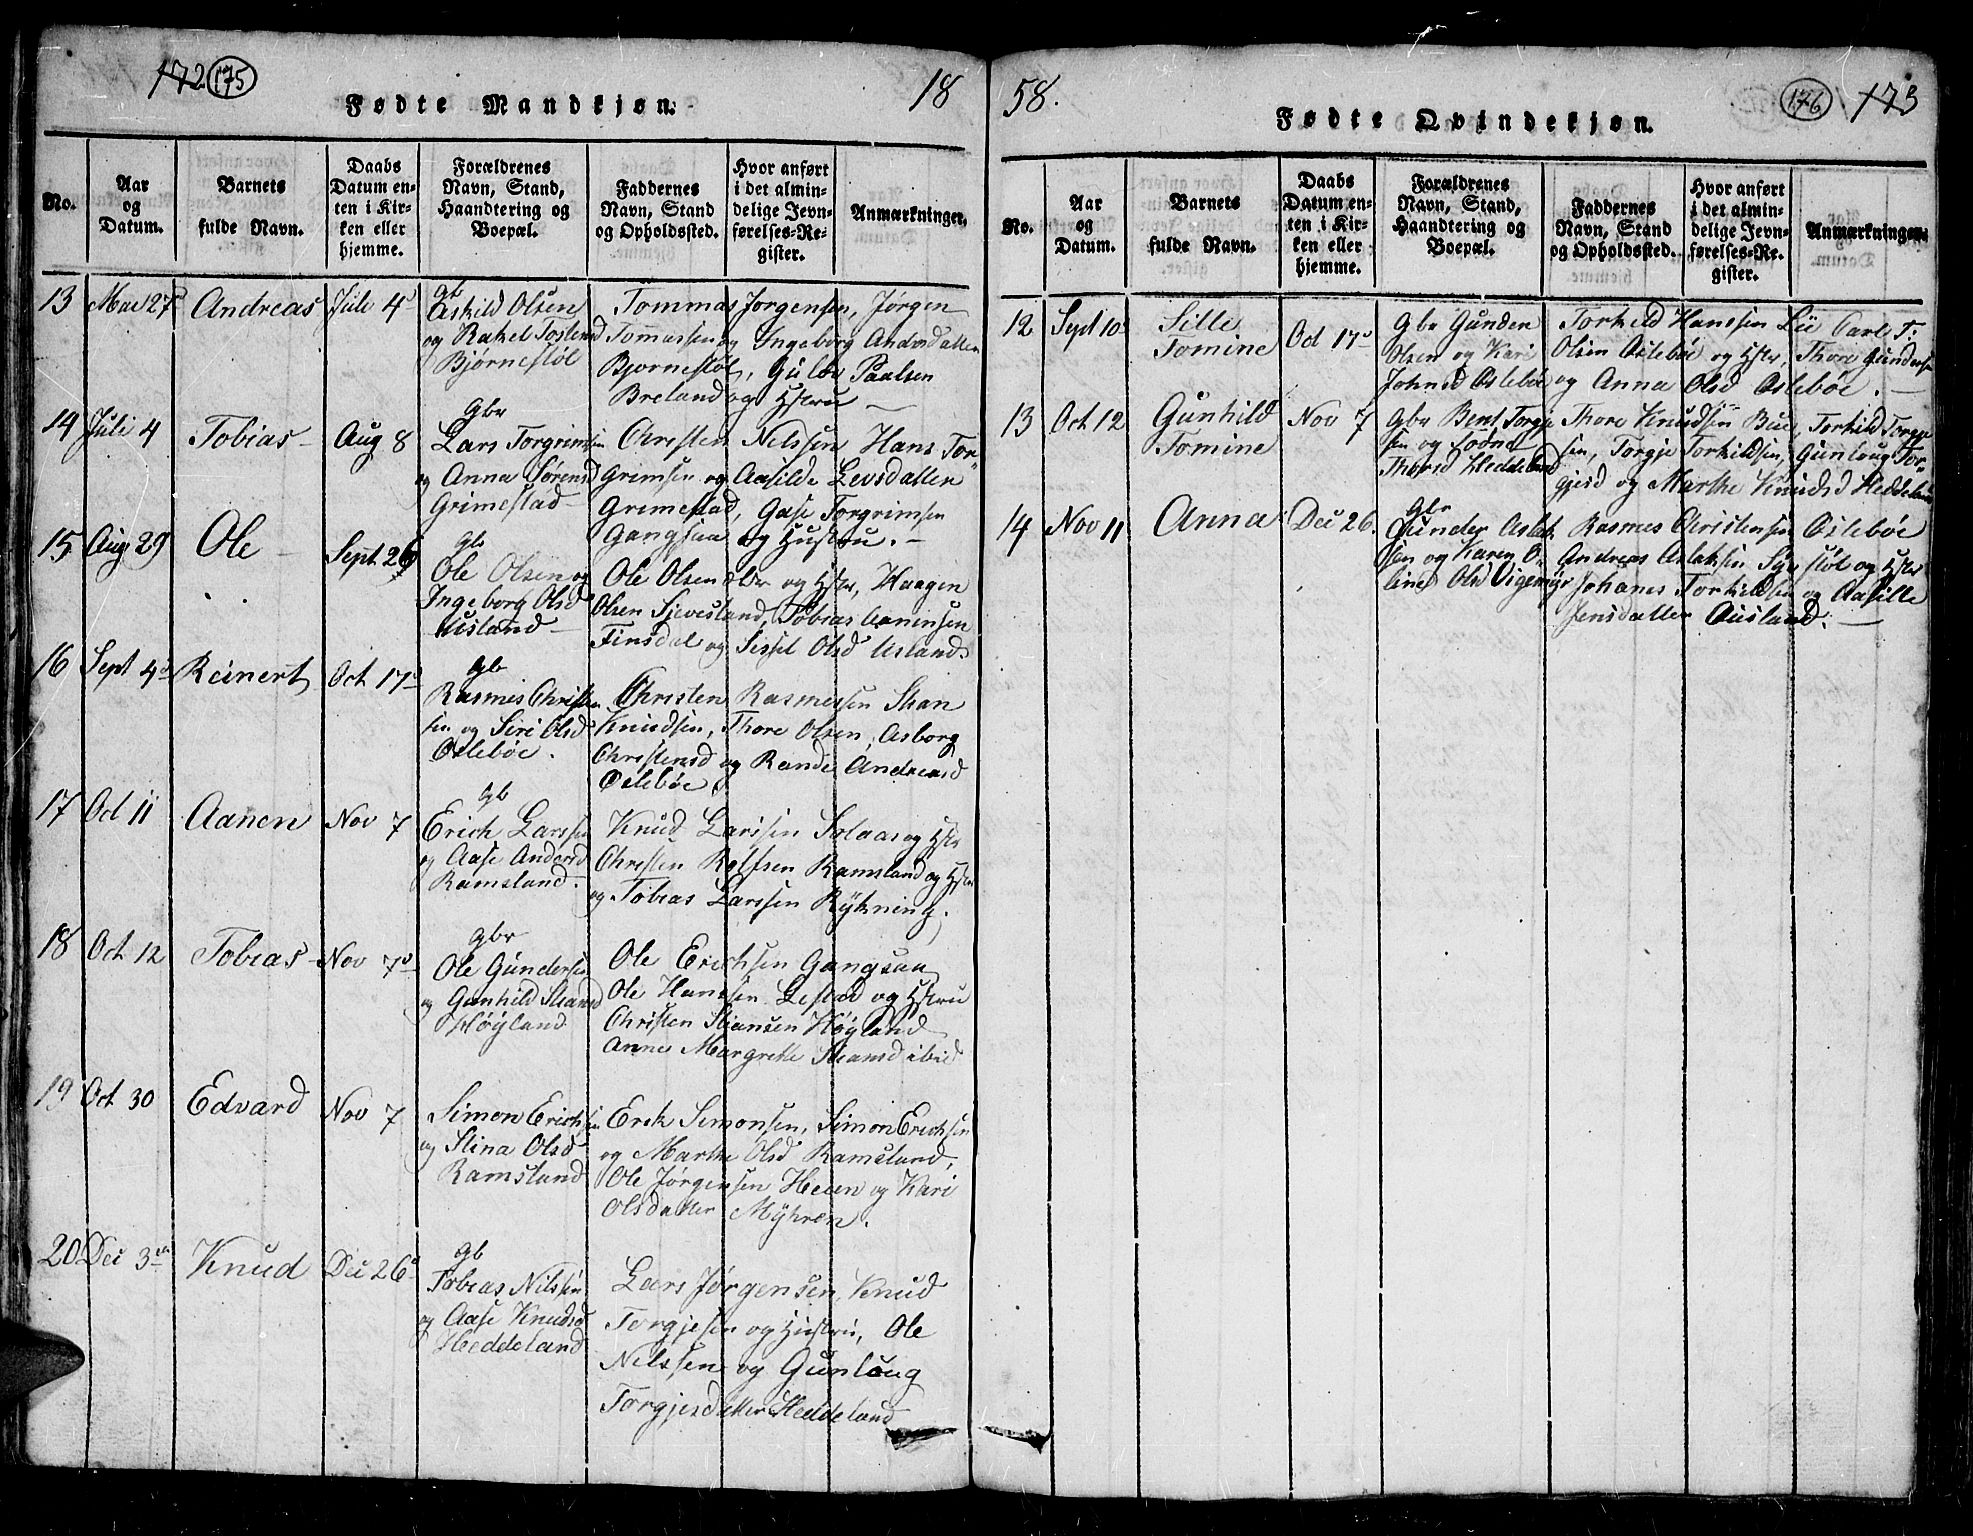 172 175
Fødte Mandkjøn.
18
No.
Aar og Datum.
Barnets fulde Navn.
Daabs Datum enten i Kirken eller hjemme.
Forældrenes Navn, Stand, Haandtering og Boepæl.
Faddernes Navn, Stand og Opholdssted.
Hvor anført i det almindelige Jevnførelses-Register.
Anmærkninger.
13 Mai 27 Andreas Juli 4
gb
Askild Olsen
og Rakel Tostensd
Bjørnestøl
Tommas Jorgensen, Jørgen
Tomassen og Ingeborg Andersdatter
Bjornestøl, Gulov Paulsen
Breland og Hstru —
14 Juli 4 Tobias — Aug 8
Gbr
Lars Torgrimsen
og Anna Sørensd
Grimestad —
Christen Nilssen, Hans Tor-
grimsen og Aasilde Levsdatter
Gremestad, Gase Torgrimsen
Gangsaa og Hustru. —
15 Aug 29 Ole — Sept 26
gb
Ole Olsen og
Ingeborg Olsd
Usland —
Ole Olsen ælder og Hstr, Haagen
Olsen Sjevesland, Tobias Aaninsen
Finsdal og Sissel Olsd Usland.
16 Sept 4d Reinert Oct 17d
gb
Rasmus Christen
sen og Siri Olsd
Oslebøe.
Christen Rasmussen Stian
Knudsen, Thore Olsen, Asborg
Christensd og Rande Andreasd
Oslebøe.
17 Oct 11 Aanen Nov 7
gb
Erich Larssen
og Aase Andersd
Ramsland.
Knud Larssen Solaas og Hstr
Christen Rolfsen Ramsland og Hstr
og Tobias Larssen Rÿkning.
18 Oct 12 Tobias — Nov 7d
gbr
Ole Gundersen
og Gunhild Stiansd
Høÿland
Ole Erichsen Gangsaa
Ole Hanssen Lestad og Hstru
Christen Stiansen Høÿland
Anne Margrethe Stiansd ibid
19 Oct 30 Edvard Nov 7
Simon Erichsen
og Stina Olsd
Ramsland
Erik Simonsen, Simon Erichsen
og Marthe Olsd Ramsland,
Ole Jørgensen Heien og Kari
Olsdatter Mÿhren.
20 Dec 3 Knud Dec 26
gb
Tobias Nilssen
og Aase Knudsd
Heddeland
Lars Jørgensen, Knud
Torgjesen og Hustru, Ole
Nilssen og Gunloug
Torgjesdatter Heddeland
58.
Fødte Qvindekjøn.
176 173
No.
Aar og Datum.
Barnets fulde Navn.
Daabs Datum enten i Kirken eller hjemme.
Forældrenes Navn, Stand, Haandtering og Boepæl.
Faddernes Navn, Stand og Opholdssted.
Hvor anført i det almindelige Jevnførelses-Register.
Anmærkninger.
12 Sept 10 Sille Tomine Oct 17
Gbr Gunder
Olsen og Kari
Johnsd Oslebøe
Torkild Hanssen Lie Carl T:
Olsen Oslebøe og Hstr, Thore Gundersen
og Anna Olsd Oslebøe. —
13 Oct 12 Gunhild Tomine Nov 7
Gbr Bent Torgje
sen og
Thorsd Heddeland
Thore Knudsen Bue, Torkild Torgje
sen, Torgje Torkildsen, Gunloug Tor-
gjesd og Marthe Knudsd Heddeland
14 Nov 11 Anna Dec 26.
gbr
Gunder Aslak
sen og Karen O-
line Olsd Vigemÿr
Rasmus Christensen Oslebøe
Andreas Aslaksen og Hstr
Johanes Torkildsen og Aasille
Jensdatter Ausland. —